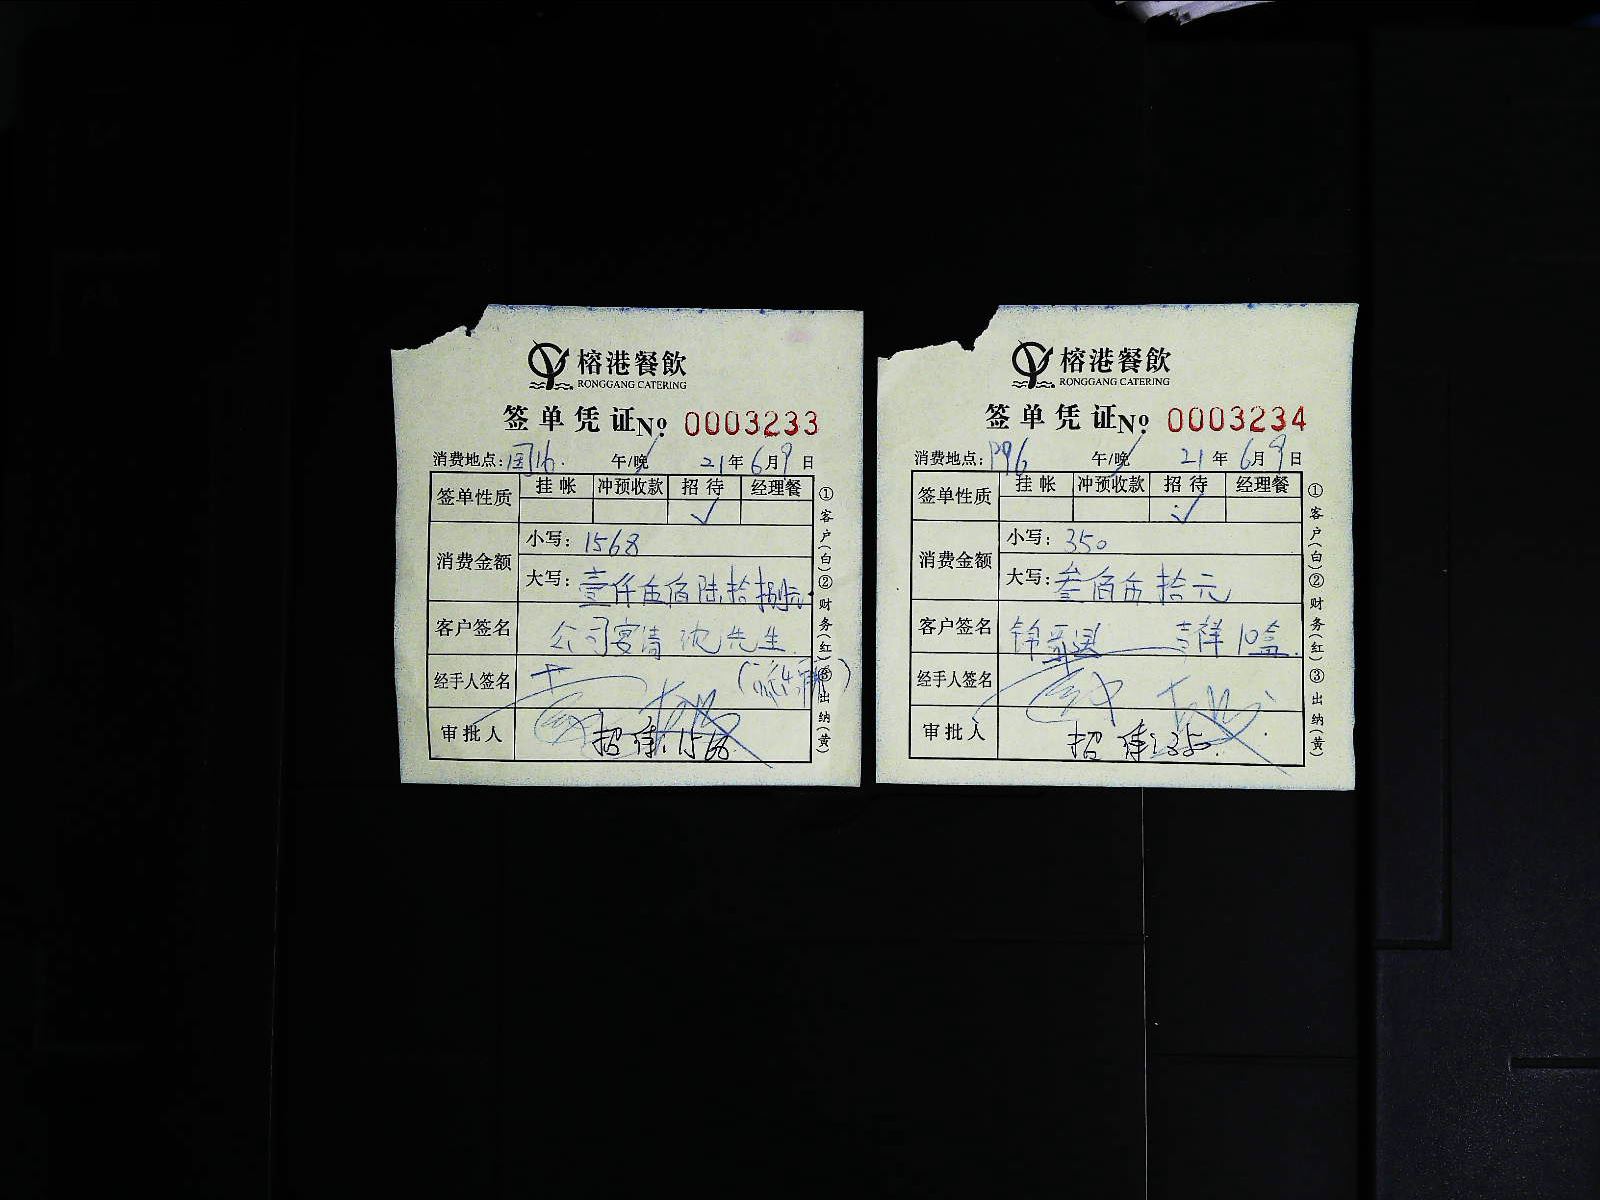 榕港餐飲
RONGGANG CATERING
签单凭证№ 0003233
消费地点: 午/晚 21年6月9日
签单性质 挂帐 冲预收款 招待 经理餐
√
消费金额 小写: 1568
大写: 壹仟伍佰陆拾捌元
客户签名 公司宴请 沈先生
经手人签名
审批人 招待:1568
①客户(白)②财务(红)③出纳(黄)
榕港餐飲
RONGGANG CATERING
签单凭证№ 0003234
消费地点: 午/晚 21年6月9日
签单性质 挂帐 冲预收款 招待 经理餐
√
消费金额 小写: 350
大写: 叁佰伍拾元
客户签名 吉祥10盒
经手人签名
审批人 招待:350
①客户(白)②财务(红)③出纳(黄)